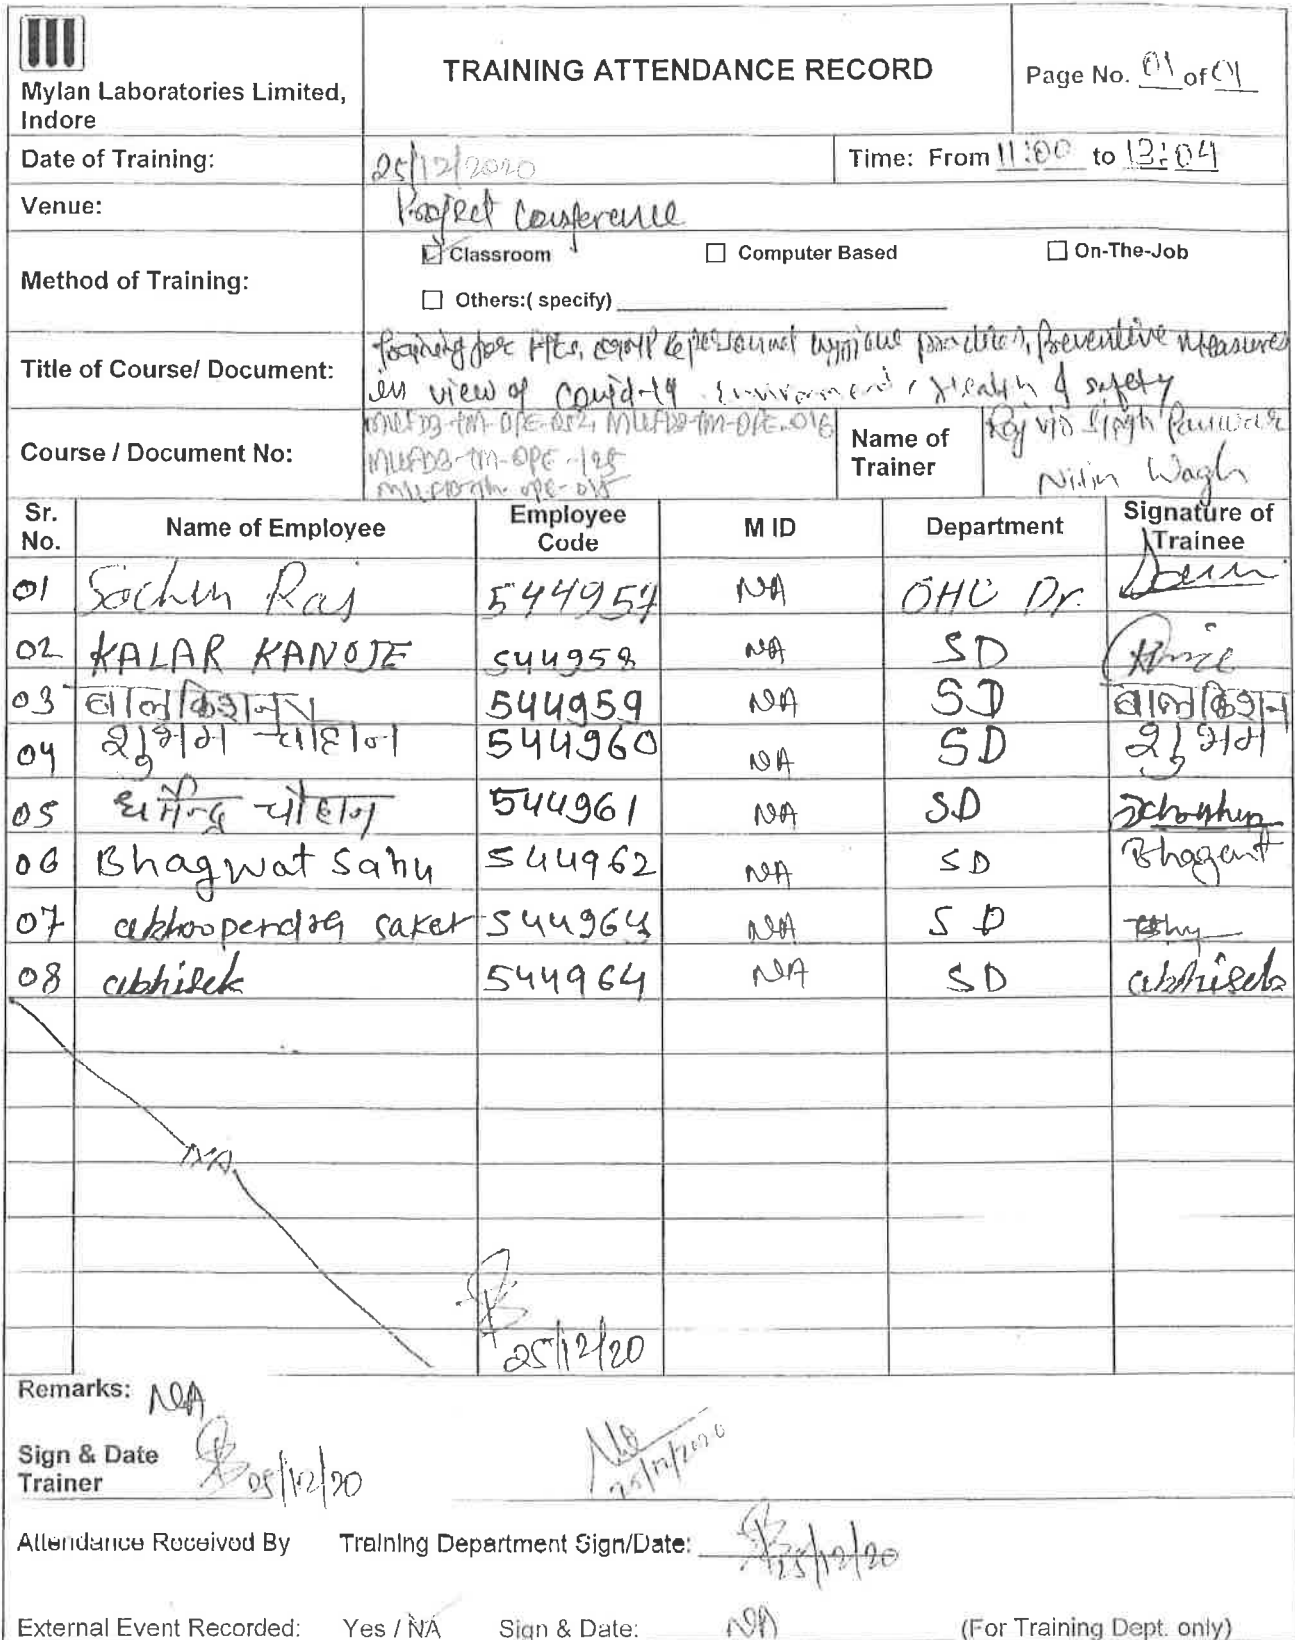 Mylan Laboratories Limited,
Indore
TRAINING ATTENDANCE RECORD
Page No. 01 of 01
Date of Training: 25/12/2020 Time: From 11:00 to 13:04
Venue: Project Conference
Method of Training: Classroom Computer Based On-The-Job
Others:( specify)
Title of Course/ Document: Training for personnel hygiene practices, Preventive Measures
in view of Covid-19 Environment, Health & safety
Course / Document No: MLLFD3-TM-OPE-016
MLLFD3-TM-OPE-125
OPE-015
Name of Trainer Singh Panwar
Nitin Wagh
Sr. No. Name of Employee Employee Code M ID Department Signature of Trainee
01 Sachin Raj 544957 NA OHC Dr.
02 KALAR KANOJE 544958 NA SD
03 बालकिशन 544959 NA SD बालकिशन
04 शुभम चौहान 544960 NA SD शुभम
05 धर्मेन्द्र चौहान 544961 NA SD
06 Bhagwat Sahu 544962 NA SD Bhagant
07 saket NA SD
08 abhisek 544964 NA SD abhisek
NA
25/12/20
Remarks: NA
Sign & Date
Trainer 25/12/20 25/12/2020
Attendance Received By Training Department Sign/Date: 25/12/20
External Event Recorded: Yes / NA Sign & Date: NA (For Training Dept. only)